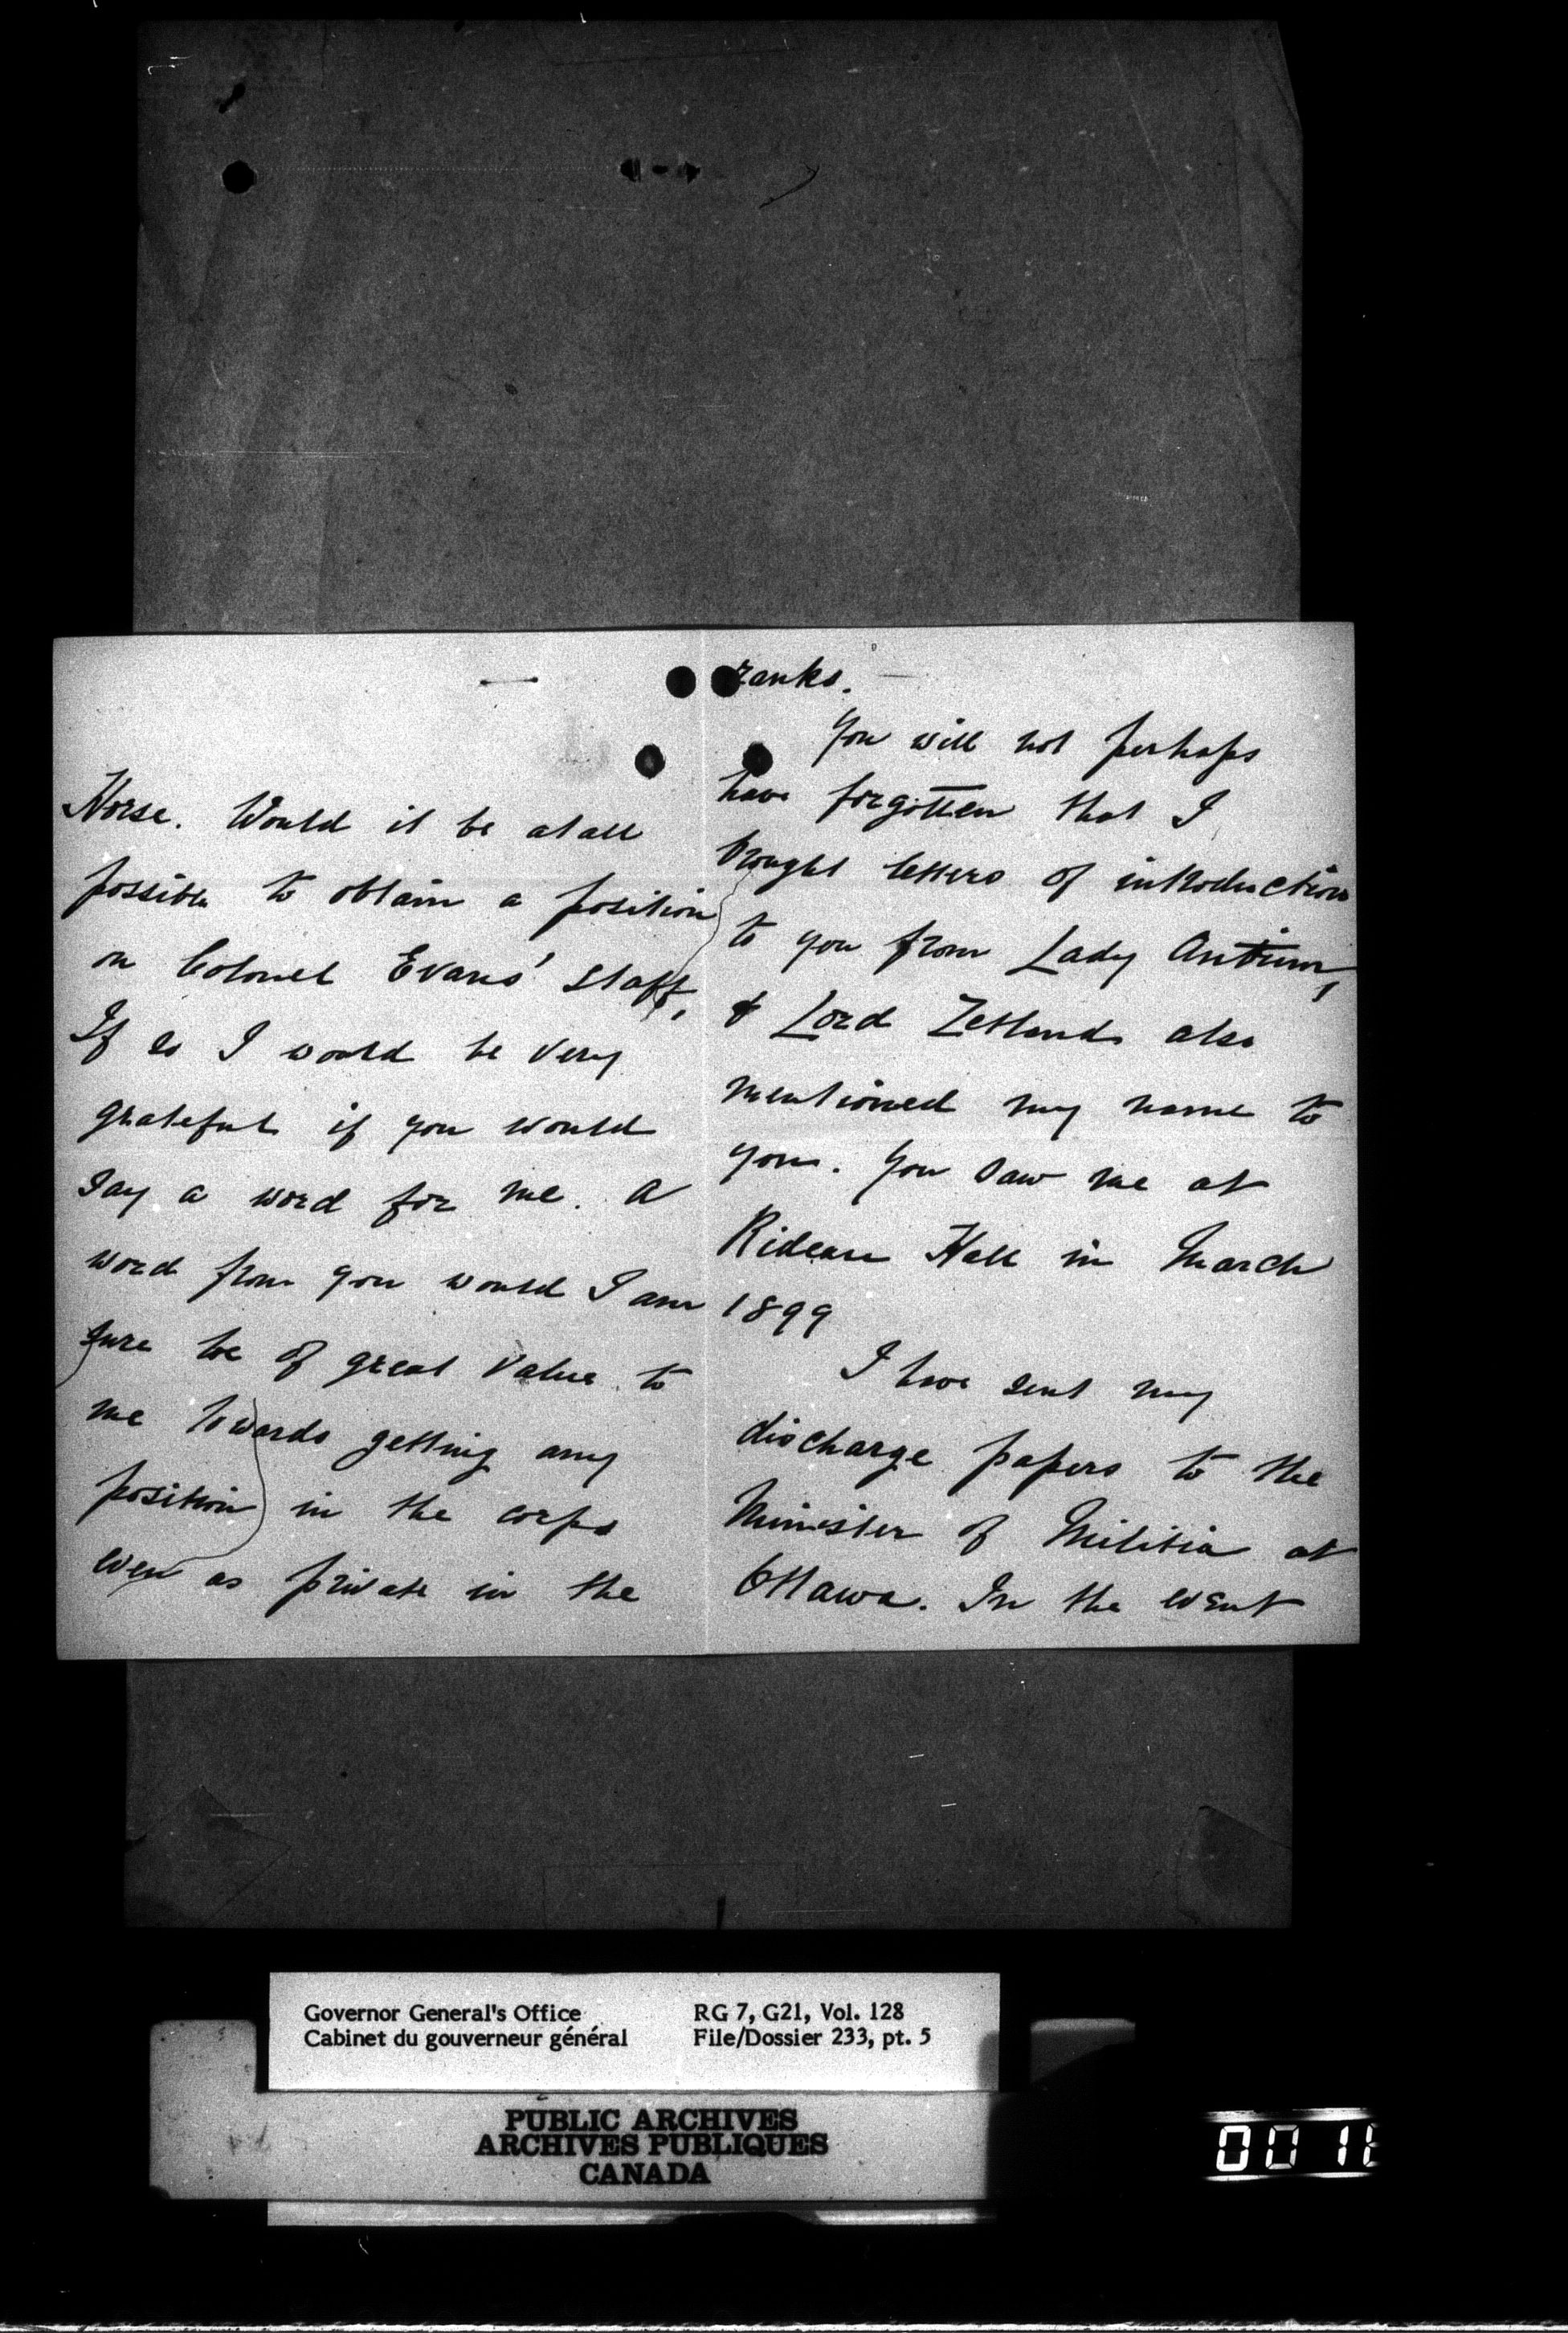 Horse. Would it be at all
possible to obtain a position
on Colonel Evans' staff,
If so I would be very
grateful if you would
say a word for me. A
word from you would I am
sure be of great value to
me towards getting any
position in the corps
even as private in the
ranks.
You will not perhaps
have forgotten that I
brought letters of introduction
to you from Lady Antrim,
& Lord Zetland also
mentioned my name to
you. You saw me at
Rideau Hall in March
1899
I have sent my
discharge papers to the
Minister of Militia at
Ottawa. In the event
Governor General's Office
Cabinet du gouverneur général
RG 7, G21, Vol. 128
File/Dossier 233, pt. 5
PUBLIC ARCHIVES
ARCHIVES PUBLIQUES
CANADA